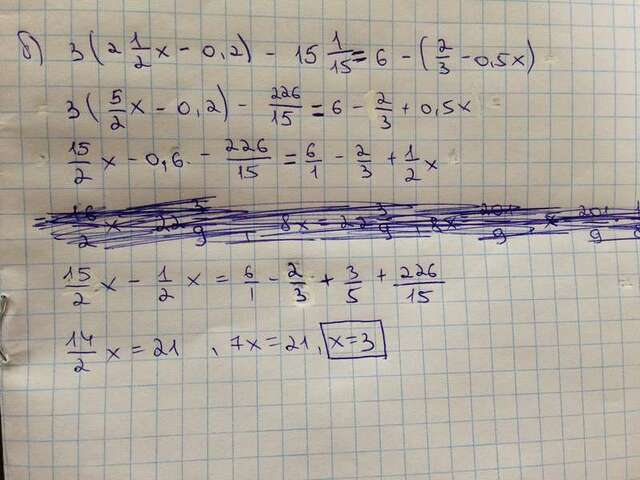 б) 3(2 1/2 x - 0,2) - 15 1/15 = 6 - (2/3 - 0,5x)
3(5/2 x - 0,2) - 226/15 = 6 - 2/3 + 0,5x
15/2 x - 0,6 - 226/15 = 6/1 - 2/3 + 1/2 x
15/2 x - 1/2 x = 6/1 - 2/3 + 3/5 + 226/15
14/2 x = 21, 7x = 21, x = 3